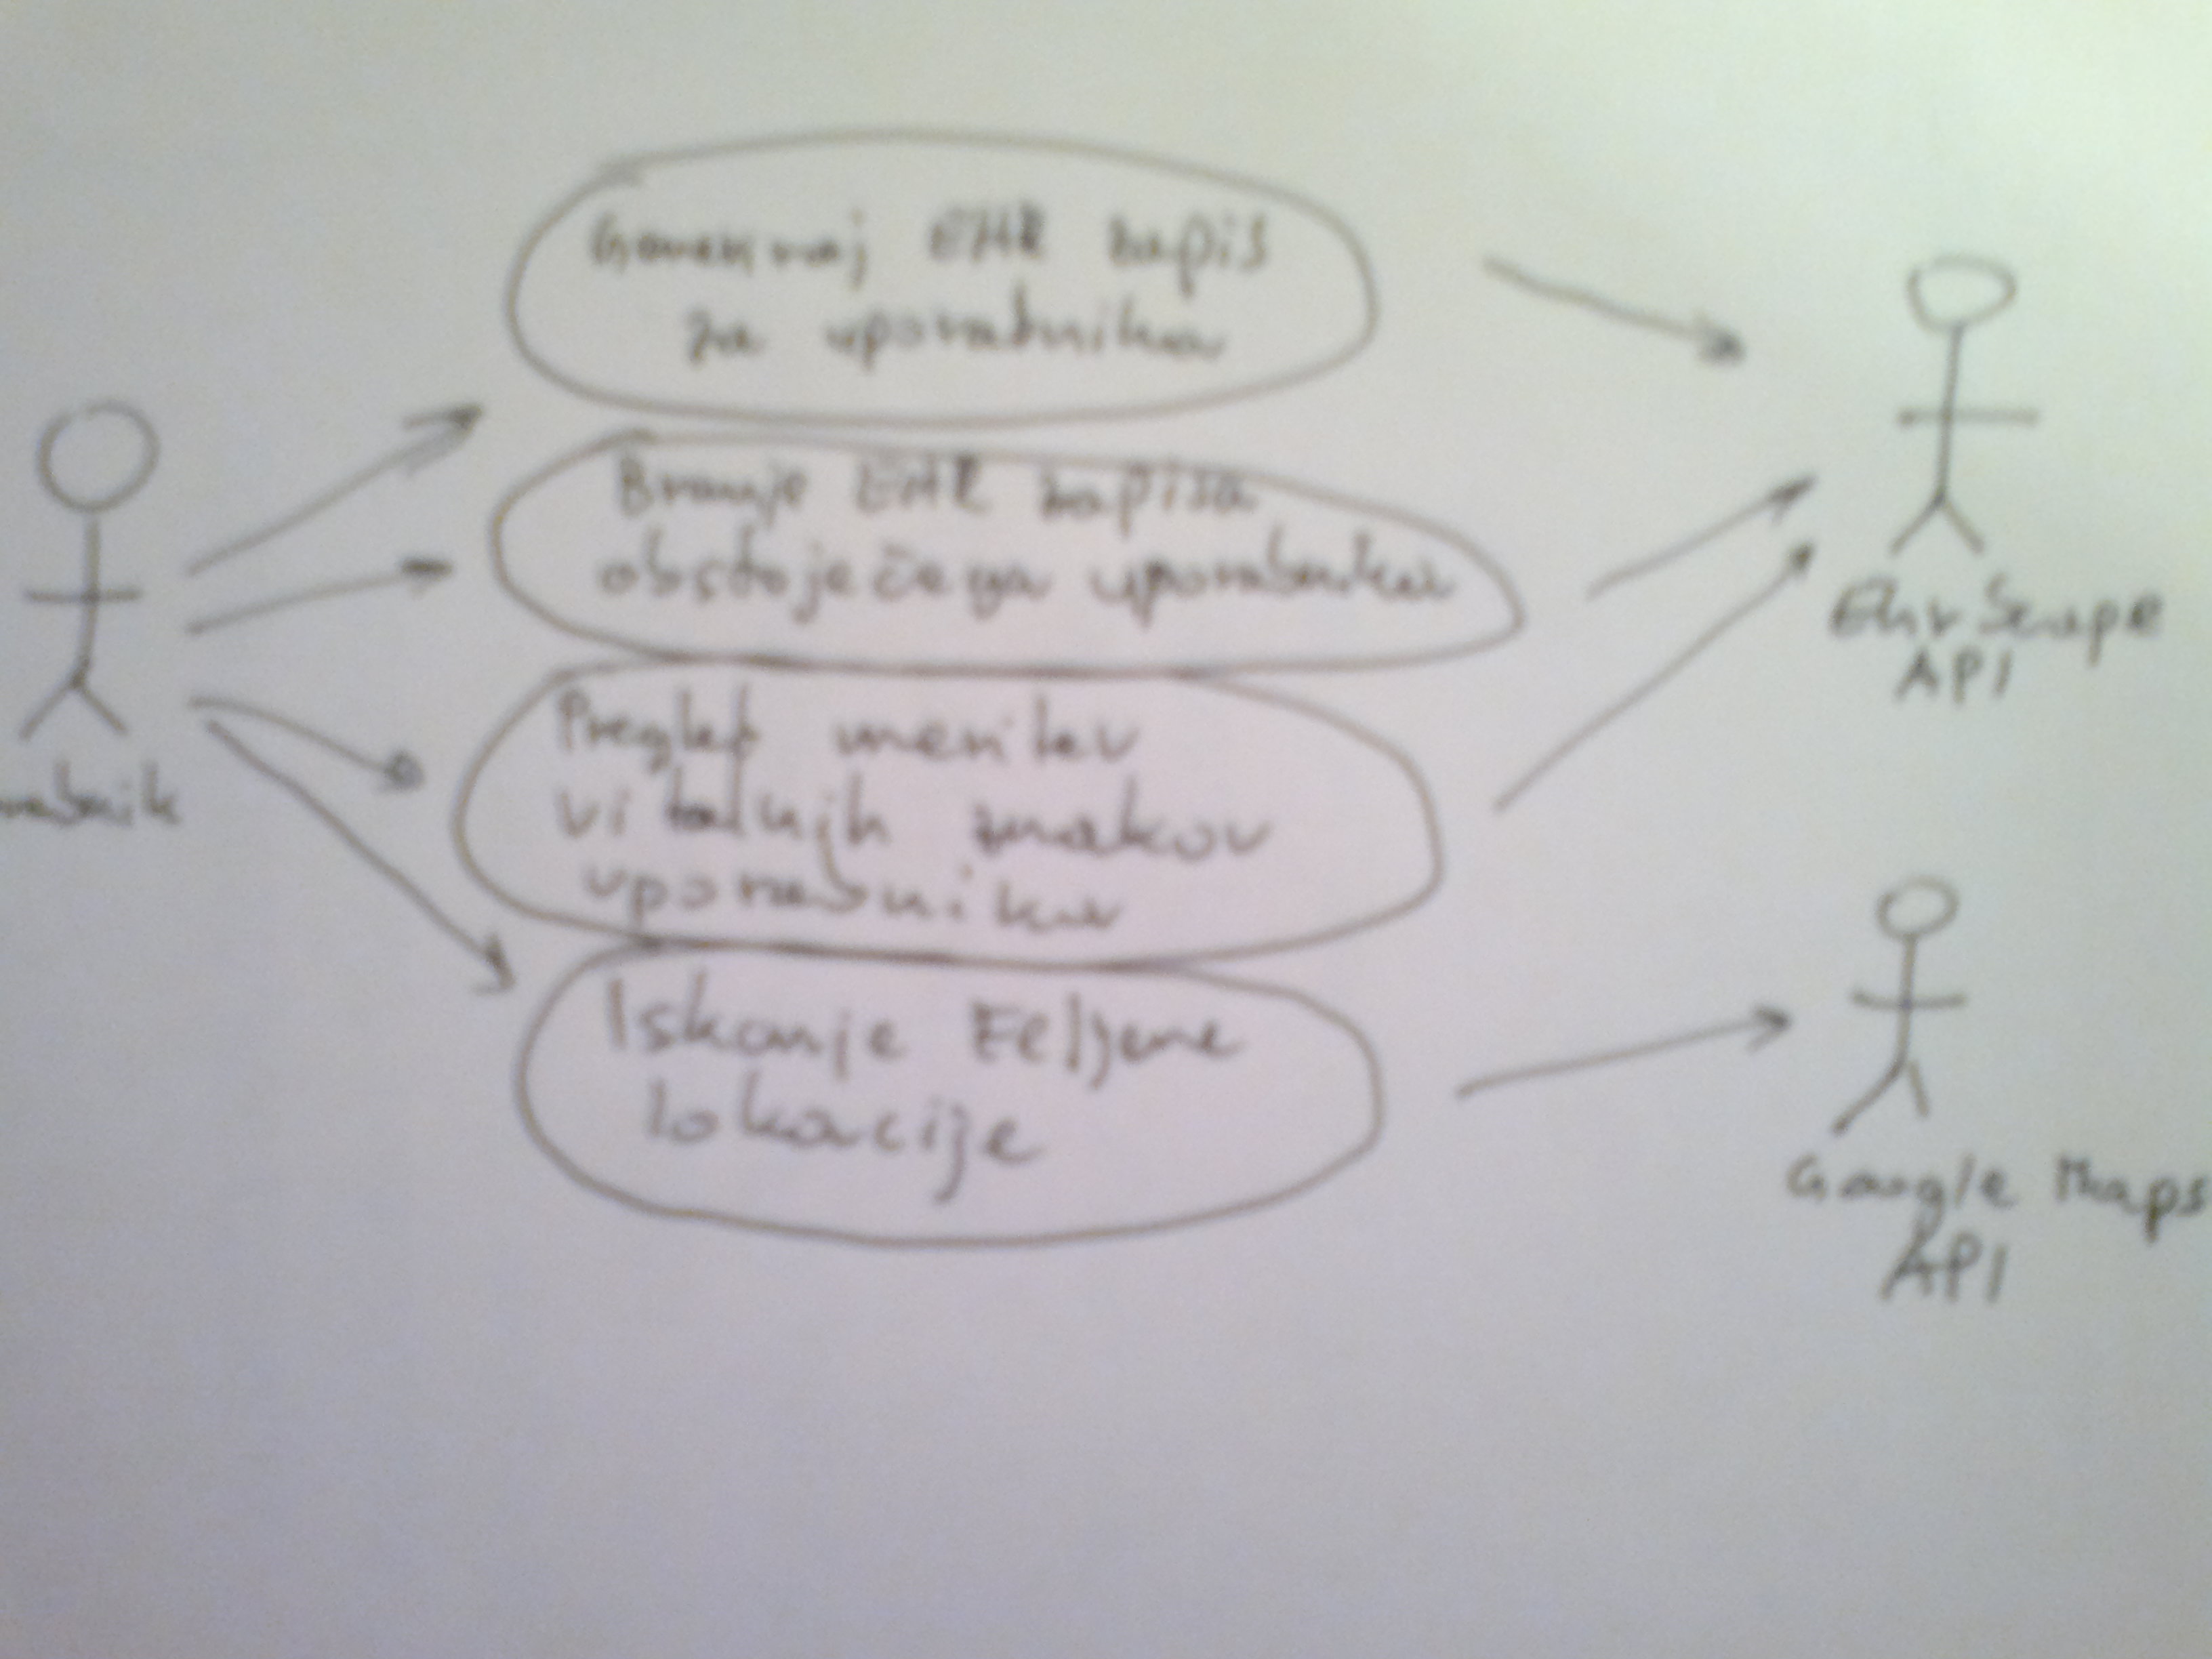 Generiraj EHR zapis
za uporabnika
Branje EHR zapisa
obstoječega uporabnika
Pregled meritev
vitalnih znakov
uporabnika
Iskanje željene
lokacije
rabnik
EhrScape
API
Google Maps
API